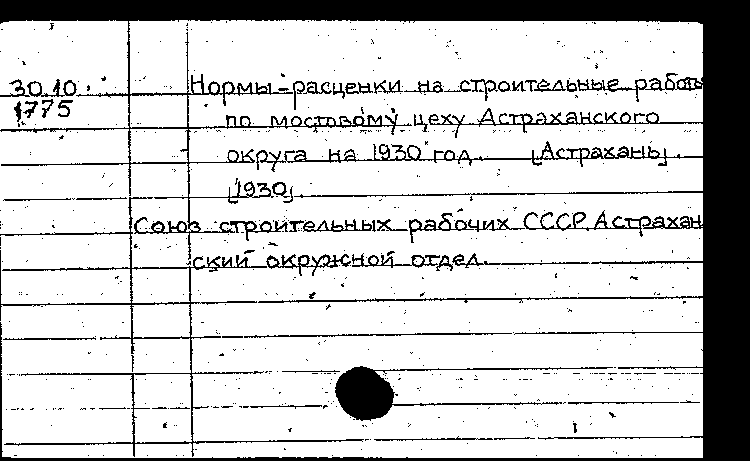 30.10.
1775
Нормы-расценки на строительные работы
по мостовому цеху Астраханского
округа на 1930 год. [Астрахань].
[1930].
Союз строительных рабочих СССР. Астрахан
ский окружной отдел.